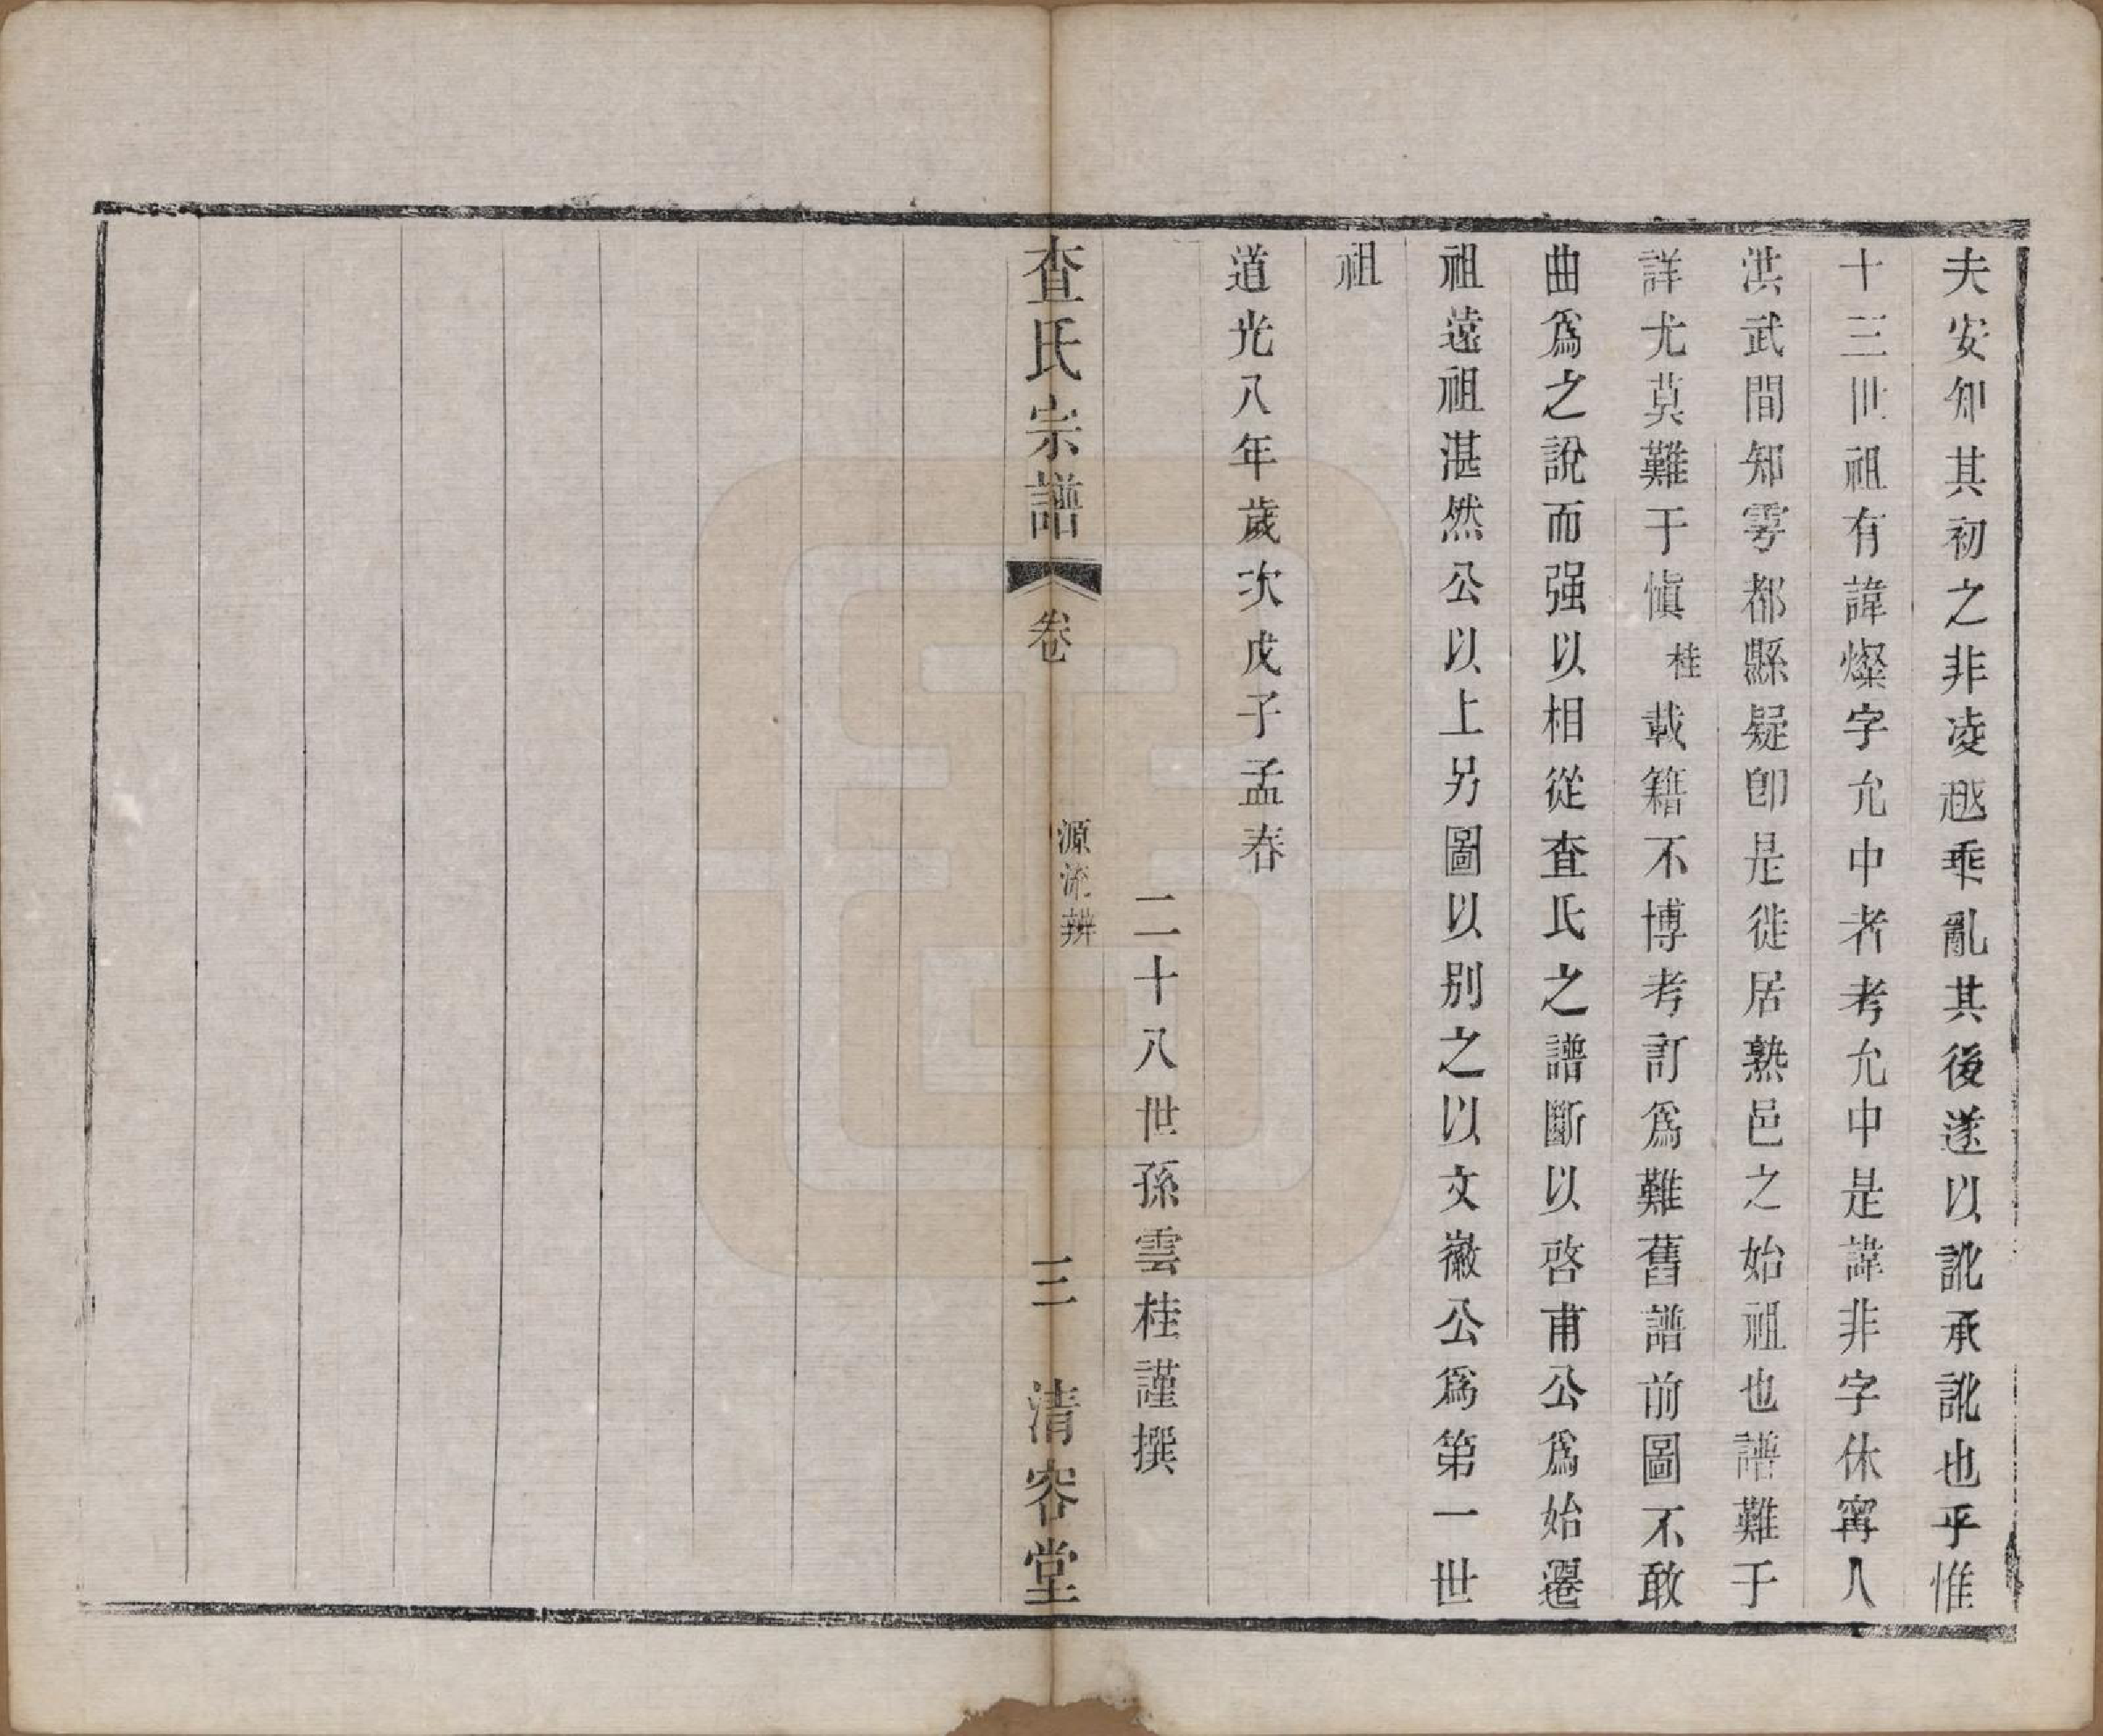 夫安知其初之非凌越乘亂其後遂以訛承訛也乎惟
十三世祖有諱燦字允中者考允中是諱非字休寗人
洪武間知雩都縣疑卽是徙居熟邑之始祖也譜難于
詳尤莫難于愼桂載籍不博考訂爲難舊譜前圖不敢
曲爲之說而强以相從查氏之譜斷以啓甫公爲始遷
祖遠祖湛然公以上另圖以别之以文徽公爲第一世
祖
道光八年歲次戊子孟春
二十八世孫雲桂謹撰
查氏宗譜 卷 源流辨 三 清容堂